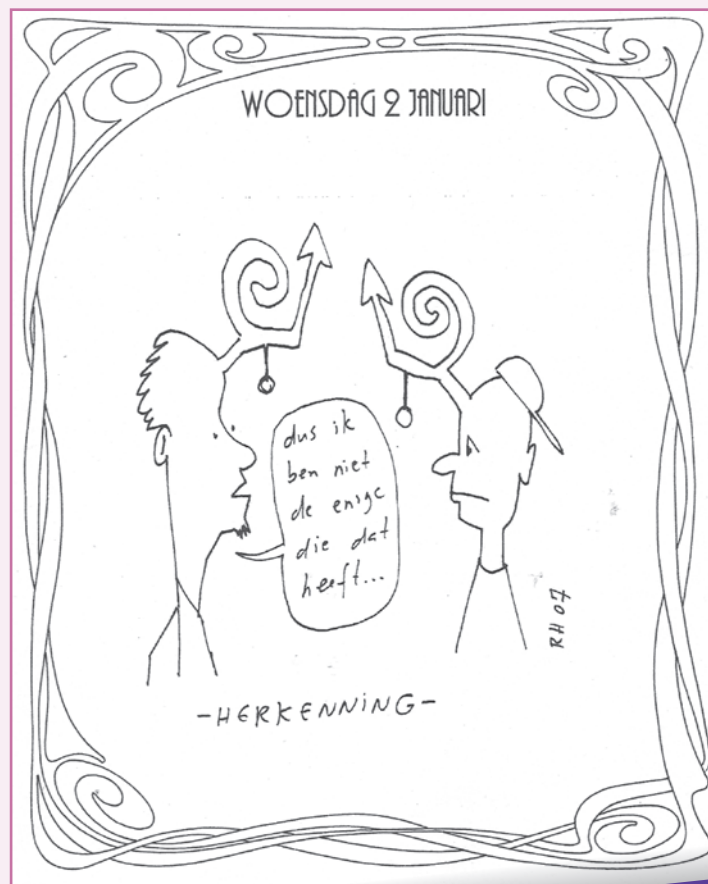 WOENSDAG 2 JANUARI
dus ik
ben niet
de enige
die dat
heeft...
RH07
-HERKENNING-